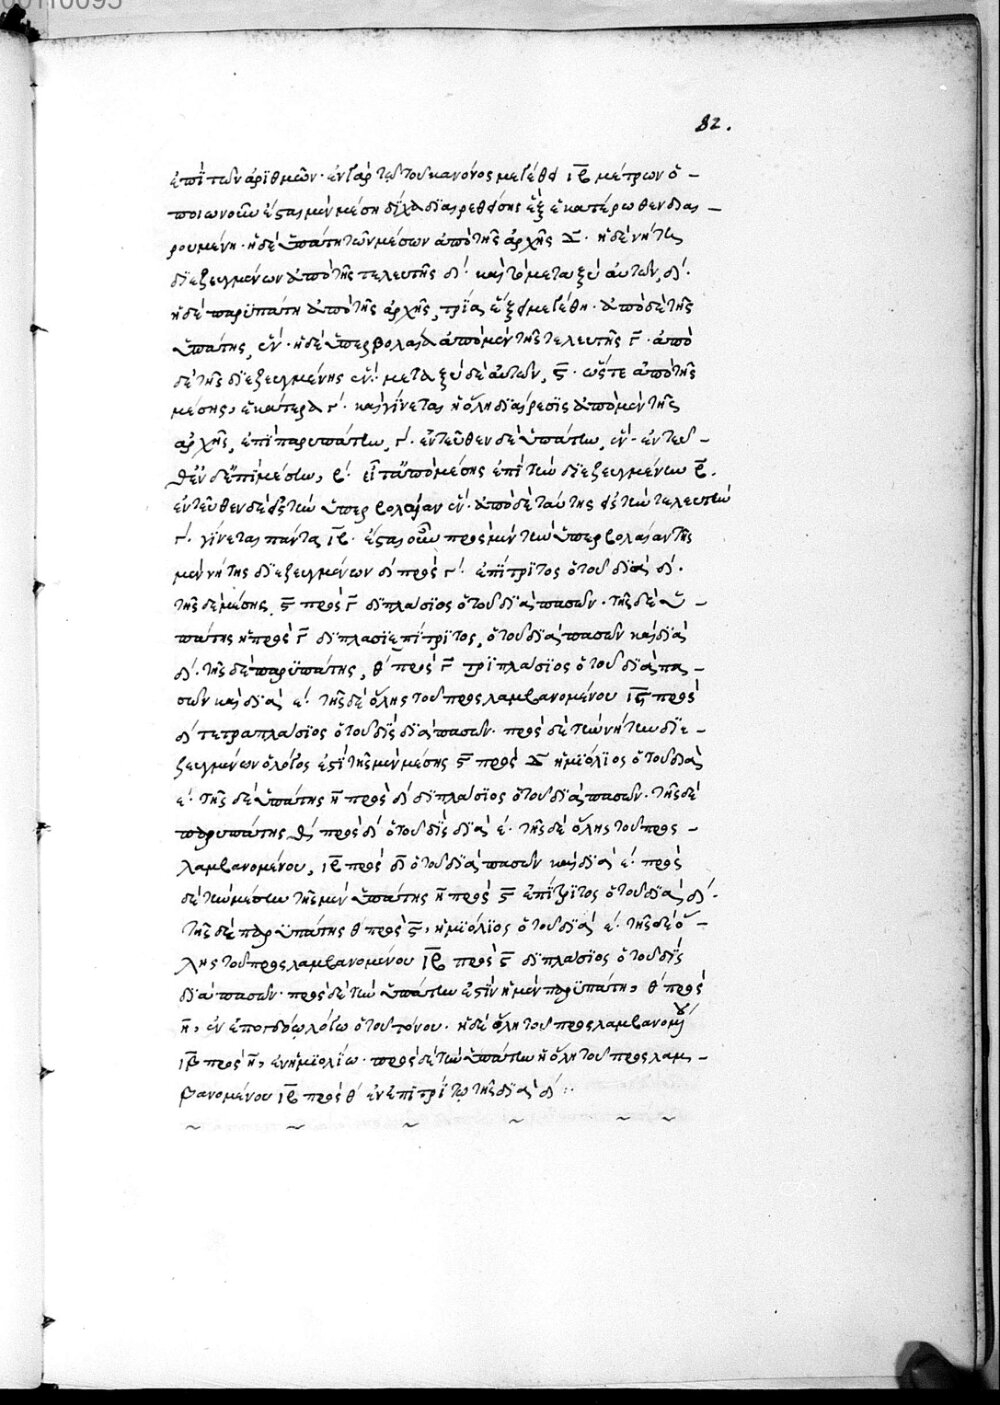 82.
ἐπὶ τῶν ἀριθμῶν· ἐν γὰρ τῷ τοῦ κανόνος μεγέθει ιβ μέτρων ὁ-
ποιωνοῦν ἔσται μὲν μέση δίχα διαιρεθείσης ἐξ ἑκατέρωθεν διαι-
ρουμένη· ἡ δὲ ὑπάτη τῶν μέσων ἀπὸ τῆς ἀρχῆς δ· ἡ δὲ νήτη
διεζευγμένων ἀπὸ τῆς τελευτῆς δ· καὶ τὸ μεταξὺ αὐτῶν, δ·
ἡ δὲ παρϋπάτη ἀπὸ τῆς ἀρχῆς, τρία ἕξει μεγέθη· ἀπὸ δὲ τῆς
ὑπάτης, ἕν· ἡ δὲ ὑπερβολαία ἀπὸ μὲν τῆς τελευτῆς γ· ἀπὸ
δὲ τῆς διεζευγμένης ἕν· μεταξὺ δὲ αὐτῶν, ς· ὥστε ἀπὸ τῆς
μέσης, ἑκάτερα γ· καὶ γίνεται ἡ ὅλη διαίρεσις ἀπὸ μὲν τῆς
ἀρχῆς, ἐπὶ παρυπάτην, γ· ἐντεῦθεν δὲ ὑπάτην, ἕν· ἐντεῦ-
θεν δ' ἐπὶ μέσην, β· εἶτα ἀπὸ μέσης ἐπὶ τὴν διεζευγμένην β.
ἐντεῦθεν δὲ εἰς τὴν ὑπερβολαίαν ἕν· ἀπὸ δὲ ταύτης εἰς τὴν τελευτὴν
γ· γίνεται πάντα ιβ· ἔσται οὖν πρὸς μὲν τὴν ὑπερβολαίαν τῆς
μὲν νήτης διεζευγμένων δ πρὸς γ· ἐπίτριτος ὁ τοῦ διὰ δ·
τῆς δὲ μέσης, ς πρὸς γ διπλάσιος ὁ τοῦ διαπασῶν· τῆς δὲ ὑ-
πάτης η πρὸς γ διπλασιεπίτριτος, ὁ τοῦ διαπασῶν καὶ διὰ
δ· τῆς δὲ παρϋπάτης, θ πρὸς γ τριπλάσιος ὁ τοῦ διαπα-
σῶν καὶ διὰ ε· τῆς δὲ ὅλης τοῦ προσλαμβανομένου ις πρὸς
δ τετραπλάσιος ὁ τοῦ δὶς διαπασῶν· πρὸς δὲ τὴν νήτην διε-
ζευγμένων ὁ λόγος ἐστὶ τῆς μὲν μέσης ς πρὸς δ ἡμιόλιος ὁ τοῦ διὰ
ε· τῆς δὲ ὑπάτης η πρὸς δ διπλάσιος ὁ τοῦ διαπασῶν· τῆς δὲ
παρυπάτης θ πρὸς δ ὁ τοῦ δὶς διὰ ε· τῆς δὲ ὅλης τοῦ προσ-
λαμβανομένου, ιβ πρὸς δ ὁ τοῦ διαπασῶν καὶ διὰ ε· πρὸς
δὲ τὴν μέσην τῆς μὲν ὑπάτης η πρὸς ς ἐπίτριτος ὁ τοῦ διὰ δ·
τῆς δὲ παρϋπάτης θ πρὸς ς, ἡμιόλιος ὁ τοῦ διὰ ε· τῆς δὲ ὅ-
λης τοῦ προσλαμβανομένου ιβ πρὸς ς διπλάσιος ὁ τοῦ δὶς
διαπασῶν· πρὸς δὲ τὴν ὑπάτην ἐστὶν ἡ μὲν παρϋπάτη, θ πρὸς
η, ἐν ἐπογδόῳ λόγῳ ὁ τοῦ τόνου· ἡ δὲ ὅλη τοῦ προσλαμβανομένου
ιβ πρὸς η, ἐν ἡμιολίῳ· πρὸς δὲ τὴν ὑπάτην ἡ ὅλη τοῦ προσλαμ-
βανομένου ιβ πρὸς θ ἐν ἐπιτρίτῳ τῆς διὰ δ :·